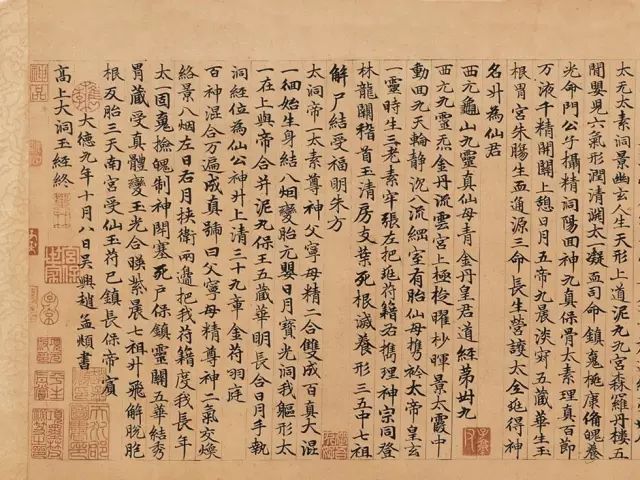 太元玄太素晨形景上道泥丸九宮森羅丹樓五
開嬰兒六氣形潤清淵太一凝孟司命鎮鬼梃康脩魄養
光命門公子攝精洞陽面神九真保骨太素理真百節
万液千精開關上憩日月五帝九晨淡寂五藏華生玉
根胃宮朱腸生血通源三命長生營護太全挺得神
名升為仙君
西元龜山九靈真仙母青金丹皇君道経第卅九
西元九靈炁金丹流雲宮上極梭曜杪暉景太霞中
動回九天輪靜沉八流綱室有胎仙母擕衿太帝皇玄
一靈時生三老素牢張左把挺符籍右擕理神宗同登
林龍關稽首玉清房支葉死根滅養形三五中七祖
解尸結受福明朱方
太洞帝一太素尊神父寧母精二合雙成百真大混
一徊始生身結八烟變胎元嬰日月寶光洞我軀形太
一在上與帝合并泥丸保王五藏華明長合日月手執
洞経位為仙公神升上清三十九章金符羽庭
百神混合万遍成真號曰父寧母精尊神二氣交煥
絡景八烟左日右月挾衛兩邊把我符籍度我長年
太一固鬼檢魄制神開塞死戶保鎮靈關五華結秀
胃藏受真體變玉光合映紫晨七祖升飛解脫胞
根及胎三天南宮受仙玉符已鎮長保帝賓
大德九年十月八日吳興趙孟頫書
高上大洞玉経終